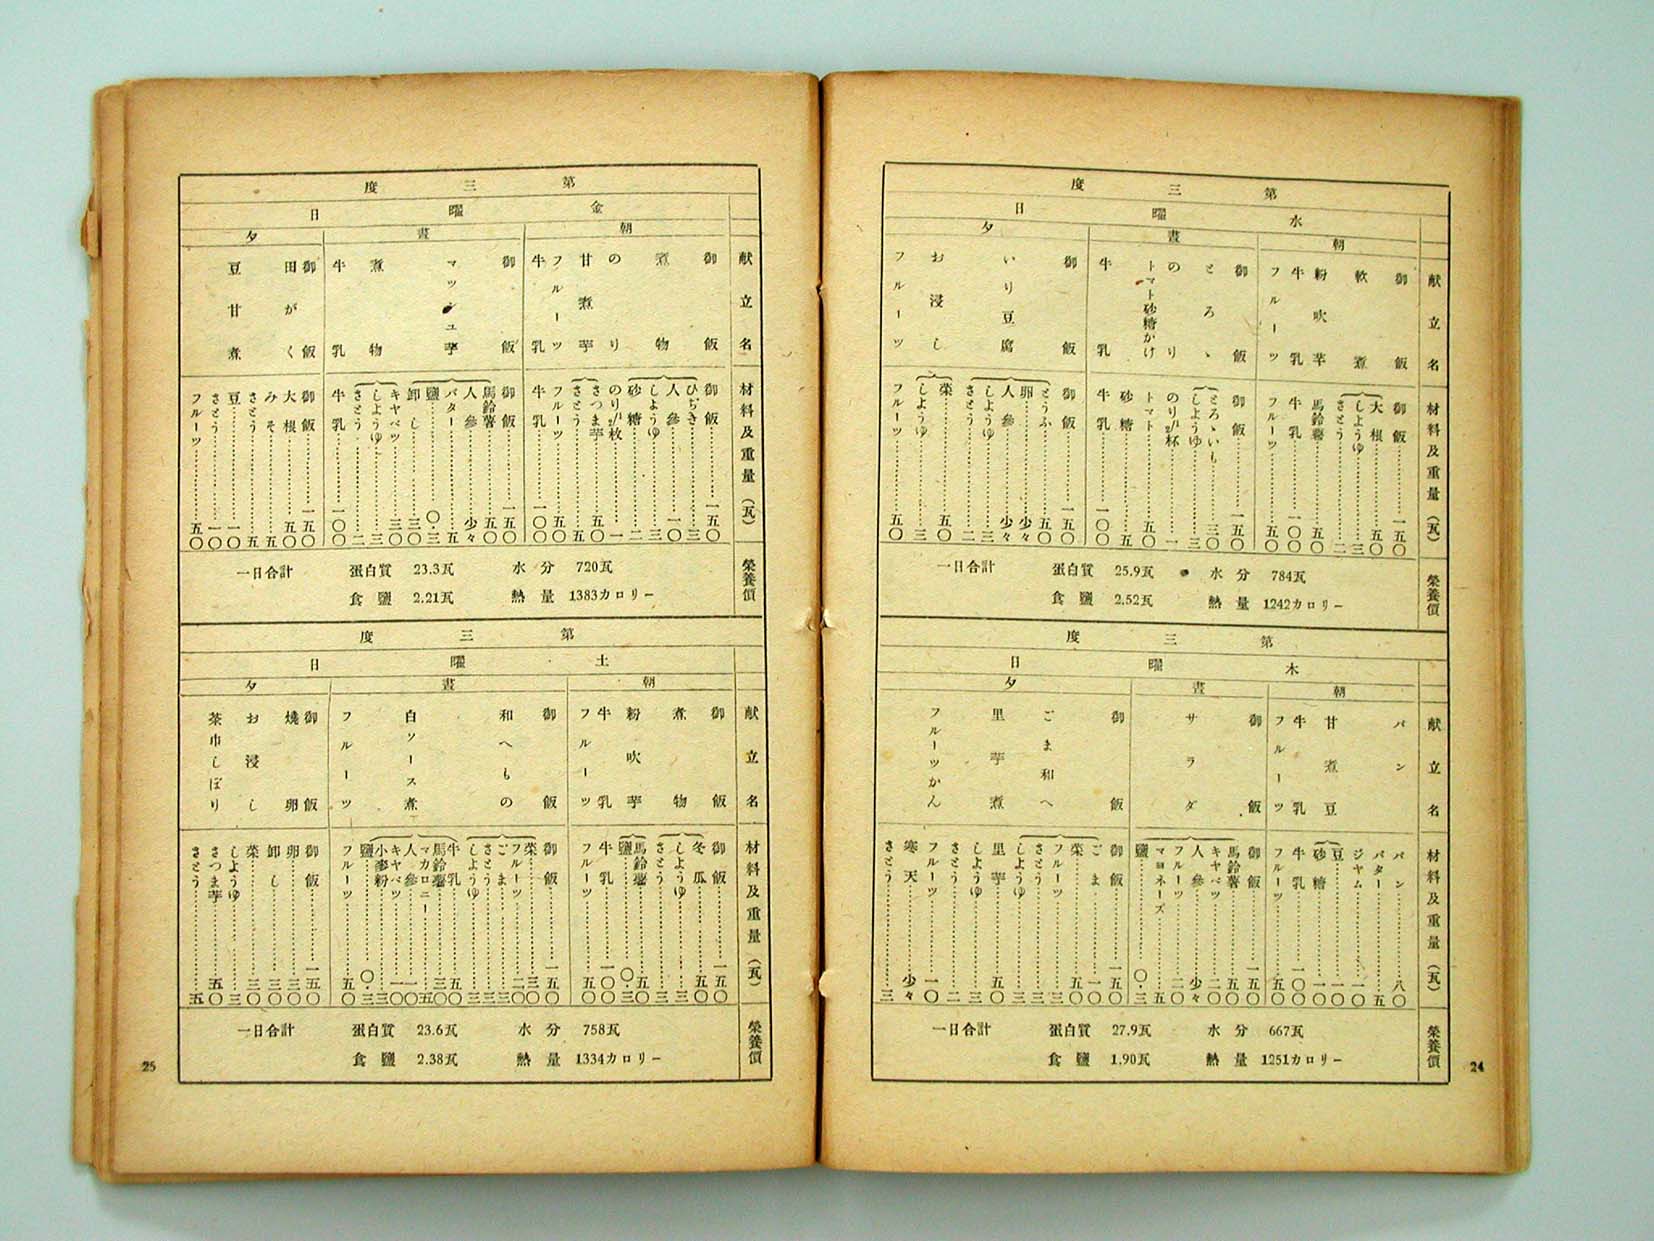 第三度
水曜日
朝
晝
夕
献立名
御飯
軟煮
粉吹芋
牛乳
フルーツ
御飯
とろゝ
のり
トマト砂糖かけ
牛乳
御飯
いり豆腐
お浸し
フルーツ
材料及重量(瓦)
御飯………一五〇
大根………五〇
しようゆ………三
さとう………二
馬鈴薯………五〇
牛乳………一〇〇
フルーツ………五〇
御飯………一五〇
とろゝいも………三〇
しようゆ………三
のり1/2杯………一
トマト………五〇
砂糖………五
牛乳………一〇〇
御飯………一五〇
とうふ………五〇
卵………少々
人參………少々
しようゆ………三
さとう………二
菜………五〇
しようゆ………三
フルーツ………五〇
榮養價
一日合計 蛋白質 25.9瓦 水分 784瓦
食鹽 2.52瓦 熱量 1242カロリー
第三度
木曜日
朝
晝
夕
献立名
パン
甘煮豆
牛乳
フルーツ
御飯
サラダ
御飯
ごま和へ
里芋煮
フルーツかん
材料及重量(瓦)
パン………八〇
バター………五
ジャム………一〇
豆………一〇
砂糖………一〇
牛乳………一〇〇
フルーツ………五〇
御飯………一五〇
馬鈴薯………五〇
キャベツ………二〇
人參………少々
フルーツ………二〇
マヨネーズ………五
鹽………〇・三
御飯………一五〇
ごま………五
菜………五〇
フルーツ………三
さとう………三
しようゆ………三
里芋………五〇
しようゆ………三
さとう………二
フルーツ………一〇
寒天………少々
さとう………三
榮養價
一日合計 蛋白質 27.9瓦 水分 667瓦
食鹽 1.90瓦 熱量 1251カロリー
24
第三度
金曜日
朝
晝
夕
献立名
御飯
煮物
のり
甘煮芋
フルーツ
牛乳
御飯
マッシュ芋
煮物
牛乳
御飯
田がく
豆甘煮
材料及重量(瓦)
御飯………一五〇
ひぢき………三
人參………一〇
しようゆ………三
砂糖………二
のり1/2枚………一
さつま芋………五〇
さとう………五
フルーツ………五〇
牛乳………一〇〇
御飯………一五〇
馬鈴薯………五〇
人參………少々
バター………五
鹽………〇・三
卸し………三〇
キャベツ………三〇
しようゆ………三
さとう………二
牛乳………一〇〇
御飯………一五〇
大根………五〇
みそ………五
さとう………五
豆………一〇
さとう………一〇
フルーツ………五〇
榮養價
一日合計 蛋白質 23.3瓦 水分 720瓦
食鹽 2.21瓦 熱量 1383カロリー
第三度
土曜日
朝
晝
夕
献立名
御飯
煮物
粉吹芋
牛乳
フルーツ
御飯
和へもの
白ソース煮
フルーツ
御飯
燒卵
お浸し
茶巾しぼり
材料及重量(瓦)
御飯………一五〇
冬瓜………五〇
しようゆ………三
さとう………三
馬鈴薯………五〇
鹽………〇・三
牛乳………一〇〇
フルーツ………五〇
御飯………一五〇
菜………三〇
フルーツ………二〇
ごま………三
さとう………三
しようゆ………三
牛乳………五〇
馬鈴薯………三〇
マカロニー………五
人參………一〇
キャベツ………一〇
小麥粉………三
鹽………〇・三
フルーツ………五〇
御飯………一五〇
卵………三〇
卸し………三〇
菜………三〇
しようゆ………三
さつま芋………五〇
さとう………五
榮養價
一日合計 蛋白質 23.6瓦 水分 758瓦
食鹽 2.38瓦 熱量 1334カロリー
25